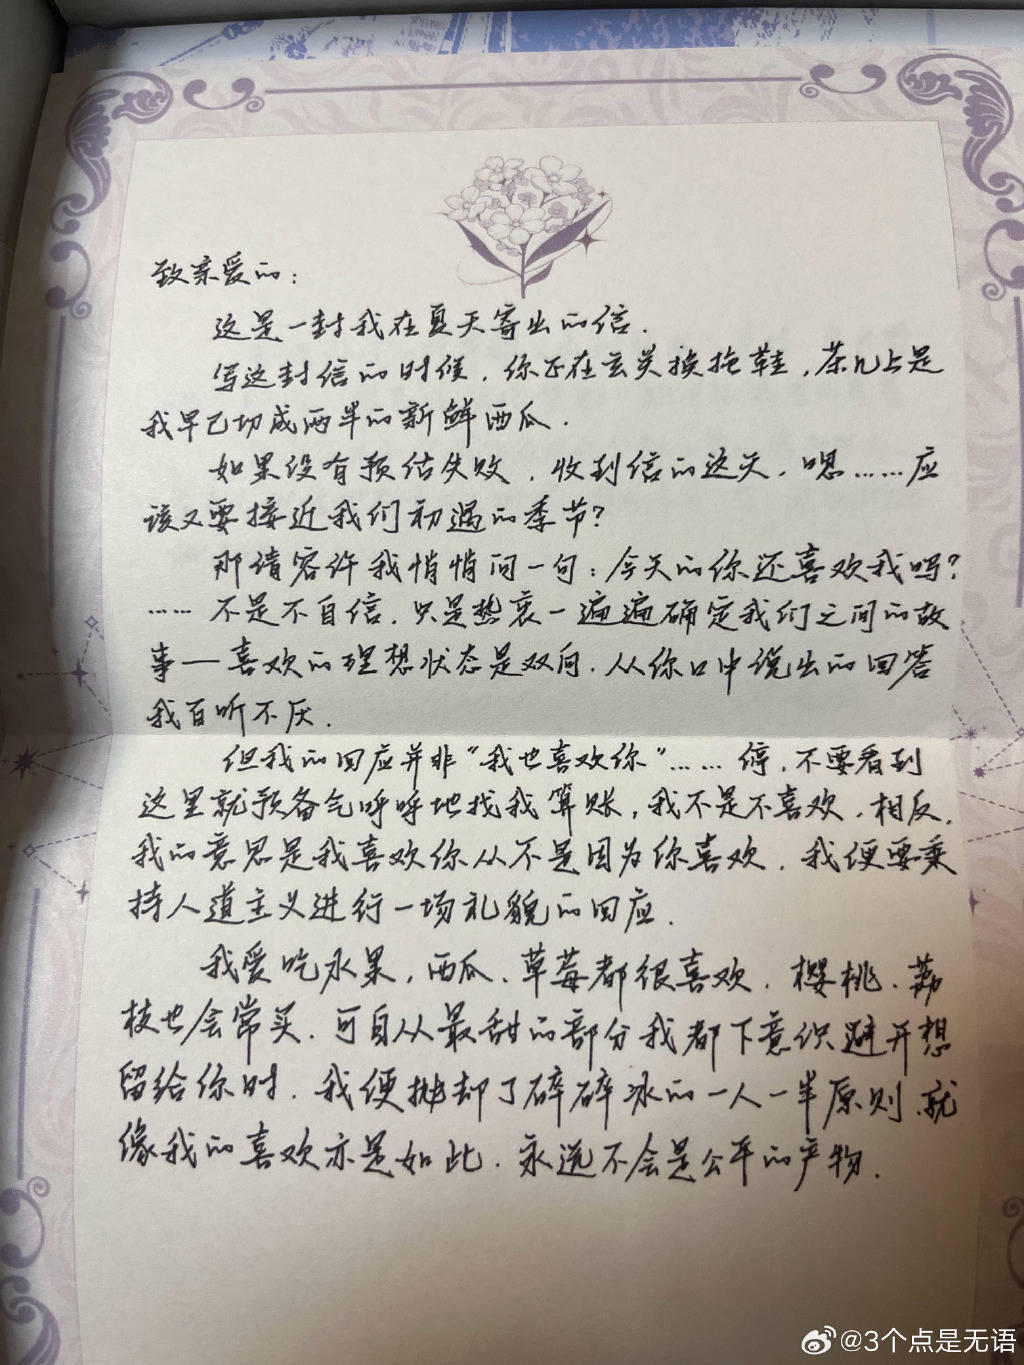 致亲爱的：
这是一封我在夏天寄出的信.
写这封信的时候，你正在玄关换拖鞋，茶几上是
我早已切成两半的新鲜西瓜.
如果没有预估失败，收到信的这天，嗯……应
该又要接近我们初遇的季节？
那请容许我悄悄问一句：今天的你还喜欢我吗？
……不是不自信，只是热衷一遍遍确定我们之间的故
事—喜欢的理想状态是双向，从你口中说出的回答
我百听不厌.
但我的回应并非“我也喜欢你”……停，不要看到
这里就预备气呼呼地找我算账，我不是不喜欢，相反，
我的意思是我喜欢你从不是因为你喜欢，我便要秉
持人道主义进行一场礼貌的回应.
我爱吃水果，西瓜、草莓都很喜欢，樱桃、荔
枝也会常买，可自从最甜的部分我都下意识避开想
留给你时，我便抛却了碎碎冰的一人一半原则，就
像我的喜欢亦是如此，永远不会是公平的产物.
@3个点是无语